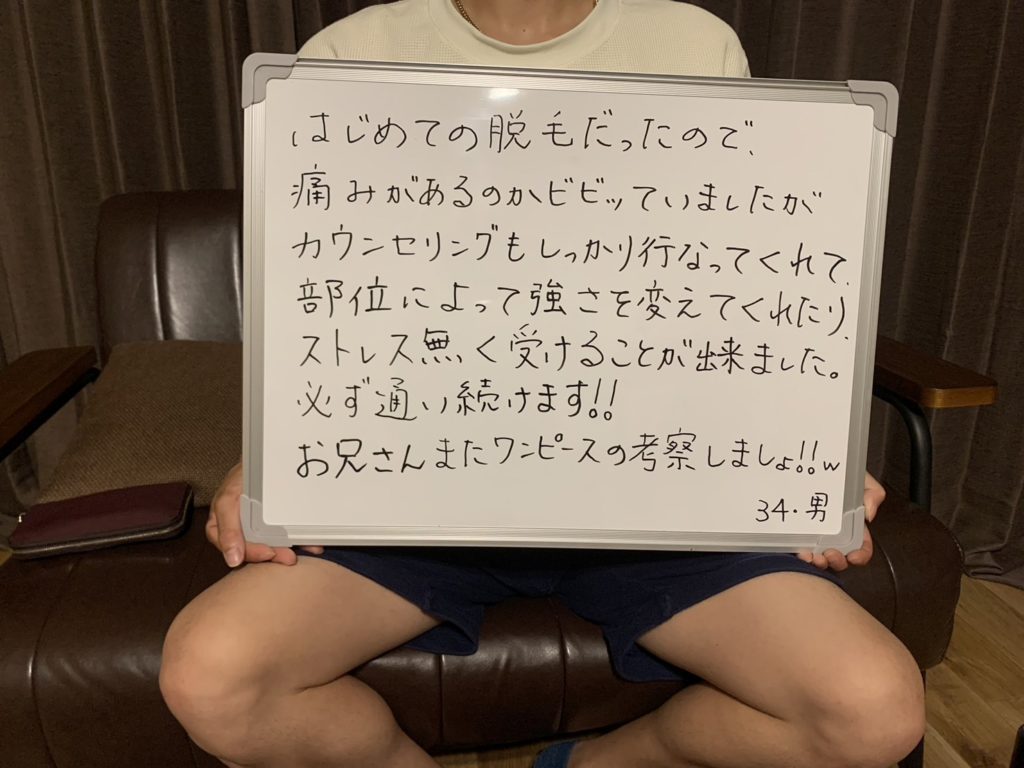 はじめての脱毛だったので、
痛みがあるのかビビッていましたが
カウンセリングもしっかり行なってくれて、
部位によって強さを変えてくれたり、
ストレス無く受けることが出来ました。
必ず通い続けます!!
お兄さんまたワンピースの考察しましょ!!w
34・男